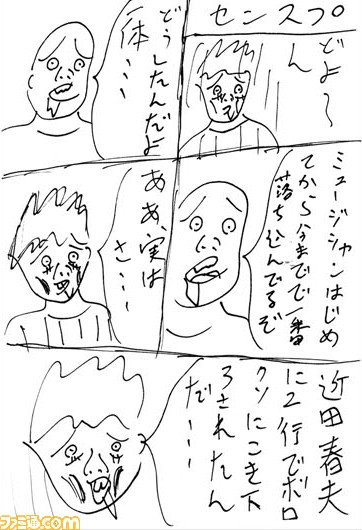 センスプ
どよ〜
ん
どうしたんだよ
一体・・・
ミュージシャンはじめ
てから今までで一番
落ち込んでるぞ
ああ、実は
さ・・・
近田春夫
に2行でボロ
クソにこき下
ろされたん
だ・・・
ファミ通.com